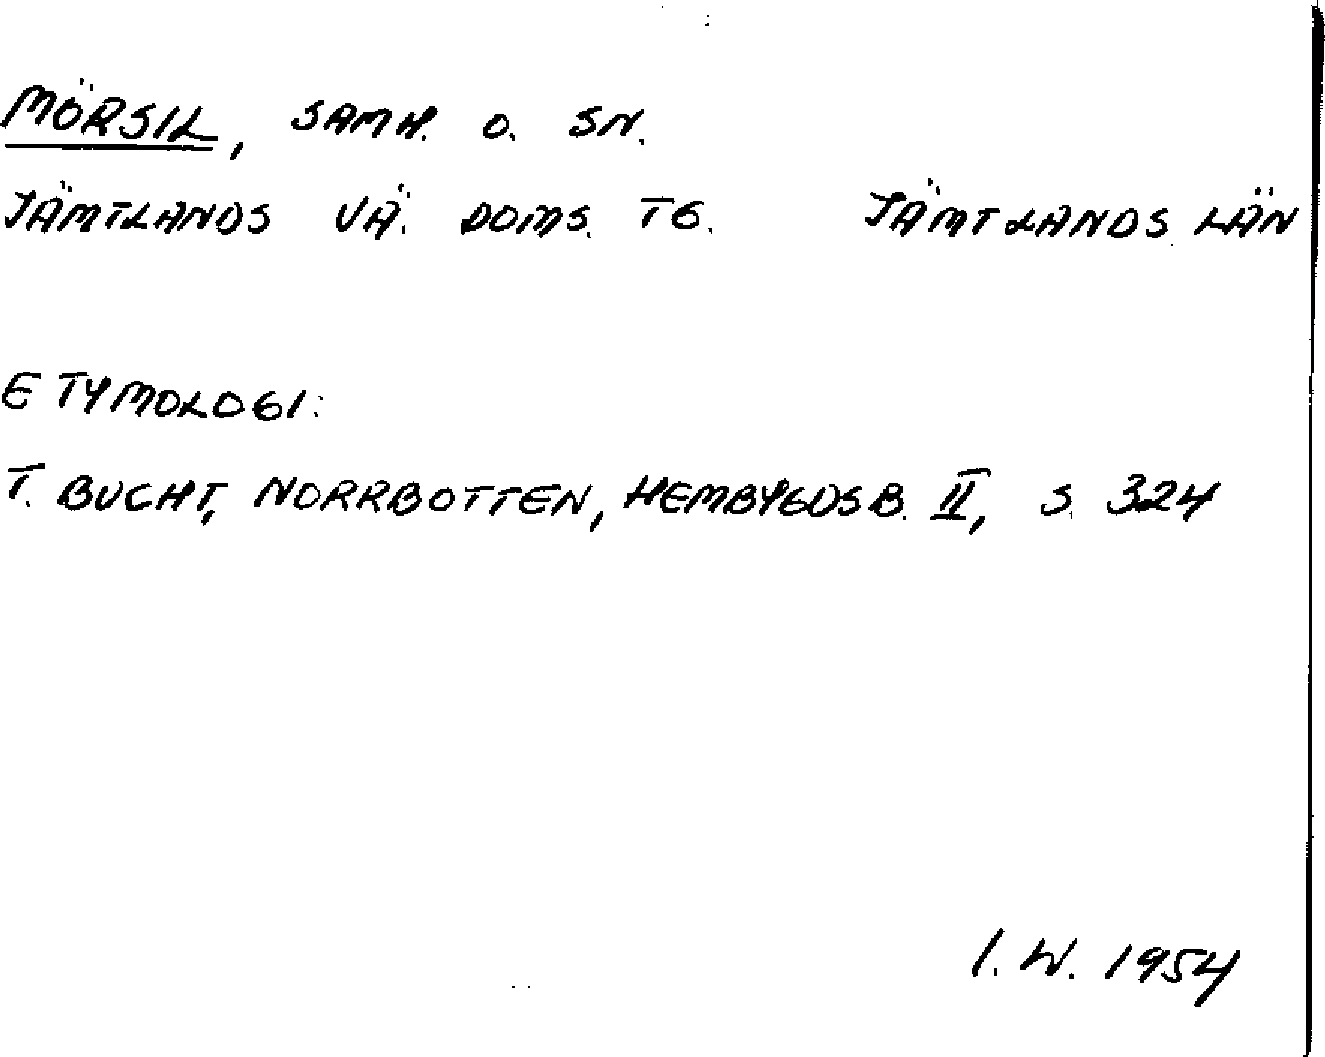 MÖRSIL, SAMH. O. SN.
JÄMTLANDS VÄ. DOMS. TG. JÄMTLANDS LÄN
ETYMOLOGI:
T. BUCHT, NORRBOTTEN, HEMBYGDSB. II, S. 324
I. W. 1954